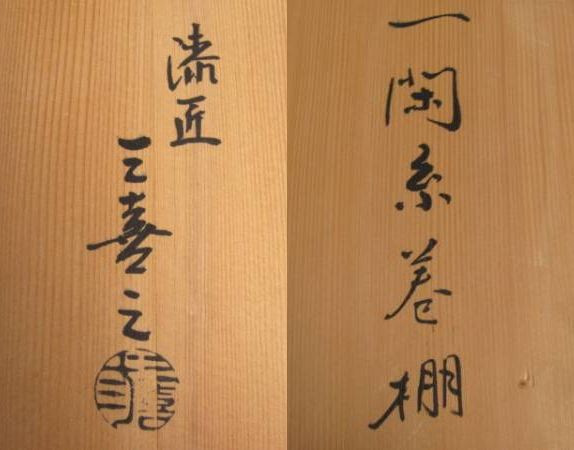 一閑糸巻棚
漆匠
三喜之